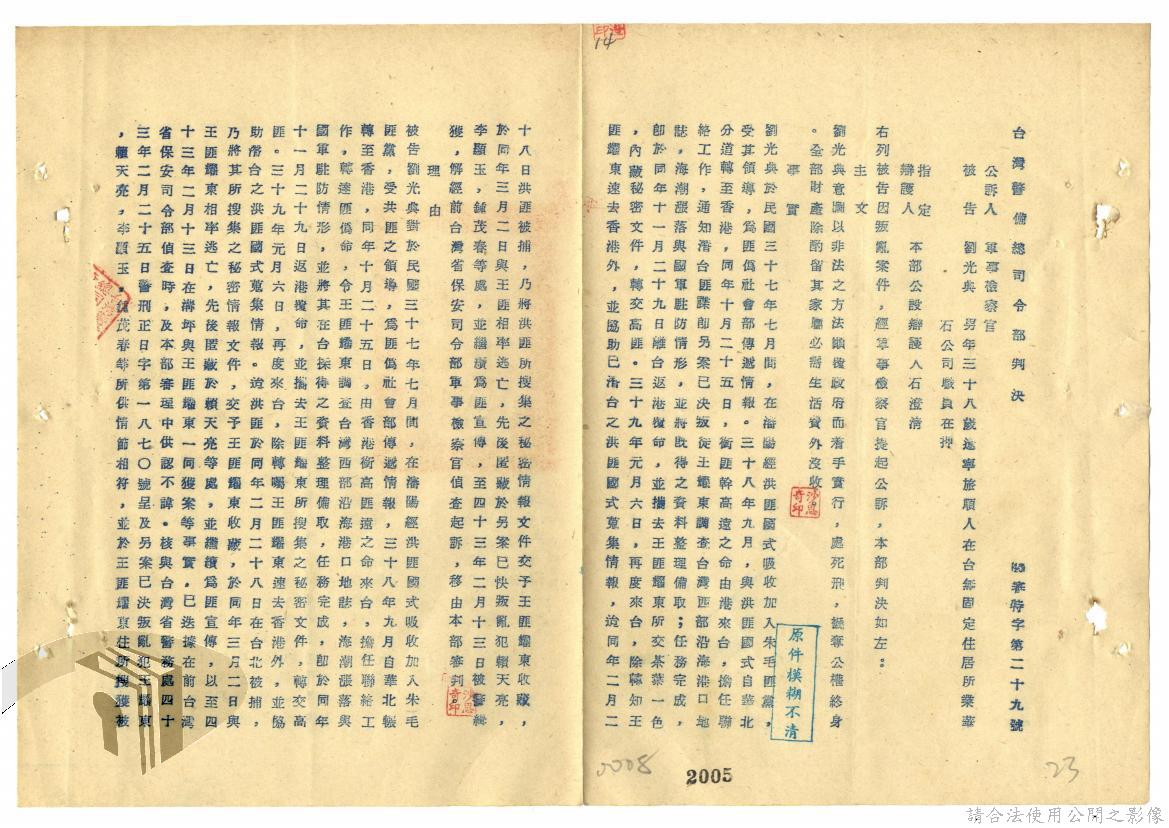 台灣警備總司令部判決
審特字第二十九號
公訴人　軍事檢察官
被　告　劉光典　男年三十八歲遼寧旅順人在台無固定住居所業華
石公司職員在押
指定
辯護人　本部公設辯護人石澄清
右列被告因叛亂案件，經軍事檢察官提起公訴，本部判決如左：
主　文
劉光典意圖以非法之方法顛覆政府而着手實行，處死刑，褫奪公權終身
。全部財產除酌留其家屬必需生活費外沒收。
事　實
劉光典於民國三十七年七月間，在瀋陽經洪匪國式吸收加入朱毛匪黨，
受其領導，爲匪僞社會部傳遞情報。三十八年九月，與洪匪國式自華北
分道轉至香港，同年十月二十五日，銜匪幹高遠之命由港來台，擔任聯
絡工作，通知潛台匪諜即另案已決叛徒王耀東調查台灣西部沿海港口地
誌，海潮漲落與國軍駐防情形，並將既得之資料整理備取；任務完成，
卽於同年十一月二十九日離台返港覆命，並攜去王匪耀東所交茶葉一包
，內藏秘密文件，轉交高匪。三十九年元月六日，再度來台，除轉知王
匪耀東速去香港外，並協助已潛台之洪匪國式蒐集情報，迨同年二月二
十八日洪匪被捕，乃將洪匪所搜集之秘密情報文件交予王匪耀東收藏，
於同年三月二日與王匪相率逃亡，先後匿藏於另案已決叛亂犯賴天亮，
李顯玉，鍾茂春等處，並繼續爲匪宣傳，至四十三年二月十三日被警緝
獲，解經前台灣省保安司令部軍事檢察官偵查起訴，移由本部審判。
理　由
被告劉光典對於民國三十七年七月間，在瀋陽經洪匪國式吸收加入朱毛
匪黨，受共匪之領導，爲匪僞社會部傳遞情報，三十八年九月自華北輾
轉至香港，同年十月二十五日，由香港銜高匪遠之命來台，擔任聯絡工
作，轉達匪僞命，令王匪耀東調查台灣西部沿海港口地誌，海潮漲落與
國軍駐防情形，並將其在台採待之資料整理備取，任務完成，卽於同年
十一月二十九日返港覆命，並攜去王匪耀東所搜集之秘密文件，轉交高
匪。三十九年元月六日，再度來台，除轉囑王匪耀東速去香港外，並協
助潛台之洪匪國式蒐集情報。迨洪匪於同年二月二十八日在台北被捕，
乃將其所搜集之秘密情報文件，交予王匪耀東收藏，於同年三月二日與
王匪耀東相率逃亡，先後匿藏於賴天亮等處，並繼續爲匪宣傳，以至四
十三年二月十三日在灣坪與王匪耀東一同獲案等事實，已迭據在前台灣
省保安司令部偵查時，及本部審理中供認不諱。核與台灣省警務處四十
三年二月二十五日警刑正日字第一八七〇號呈及另案已決叛亂犯王耀東
，賴天亮，李顯玉，鍾茂春等所供情節相符，並於王匪耀東住所搜獲被
原件模糊不清
沙恩奇印
沙恩奇印
14
0008
2005
23
請合法使用公開之影像